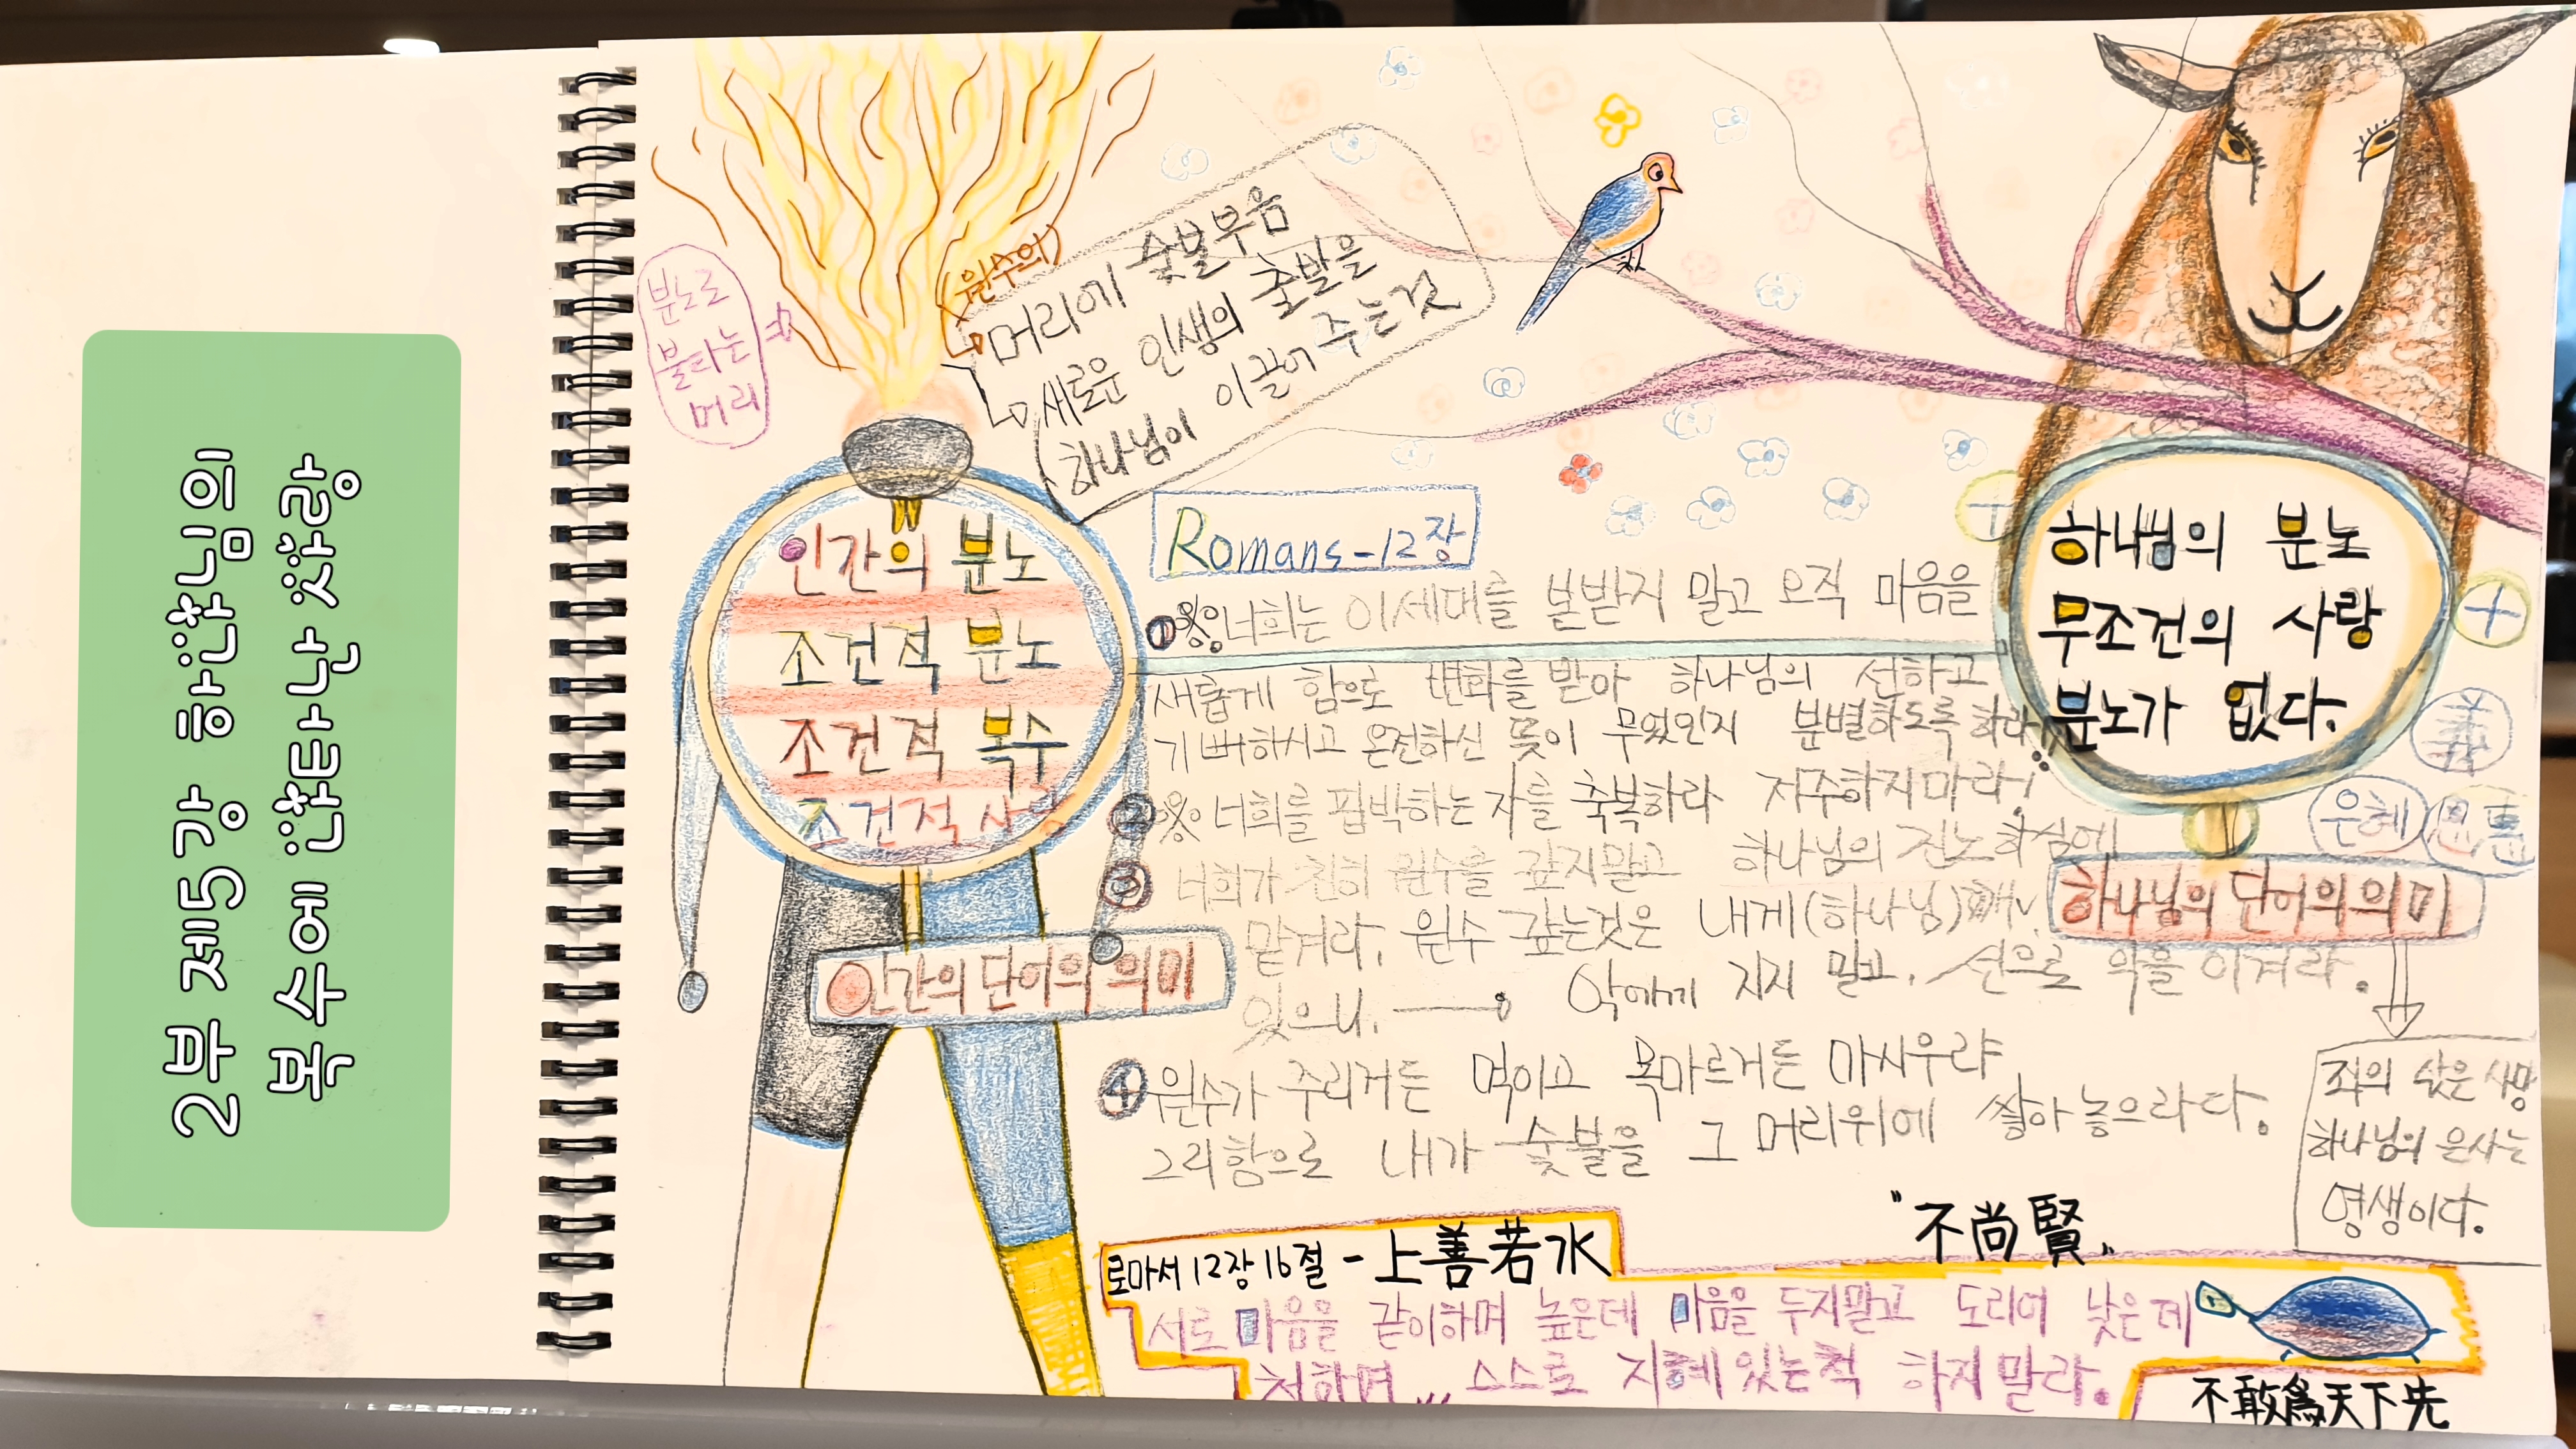 2부 제5강 하나님의
복수에 나타난 사랑
분노로
불타는
머리
(원수의)
머리에 숯불부음
새로운 인생의 출발을
하나님이 이끌어 주는것
인간의 분노
조건적 분노
조건적 복수
조건적 사랑
인간의 단어의 의미
Romans-12장
① ※ 너희는 이세대를 본받지 말고 오직 마음을
새롭게 함으로 변화를 받아 하나님의 선하고
기뻐하시고 온전하신 뜻이 무엇인지 분별하도록 하라
② ※ 너희를 핍박하는 자를 축복하라 저주하지마라!
③ 너희가 친히 원수를 갚지말고 하나님의 진노하심에
맡겨라. 원수 갚는것은 내게(하나님)
있으니. 악에게 지지 말고, 선으로 악을 이겨라.
④ 원수가 주리거든 먹이고 목마르거든 마시우랴
그리함으로 내가 숯불을 그 머리위에 쌓아 놓으라다.
하나님의 분노
무조건의 사랑
분노가 없다.
義
은혜
恩惠
하나님의 단어의 의미
죄의 삯은 사망
하나님의 은사는
영생이다.
"不尚賢"
로마서 12장 16절 - 上善若水
서로 마음을 같이하며 높은데 마음을 두지말고 도리어 낮은데
처하며... 스스로 지혜있는척 하지말라.
不敢爲天下先